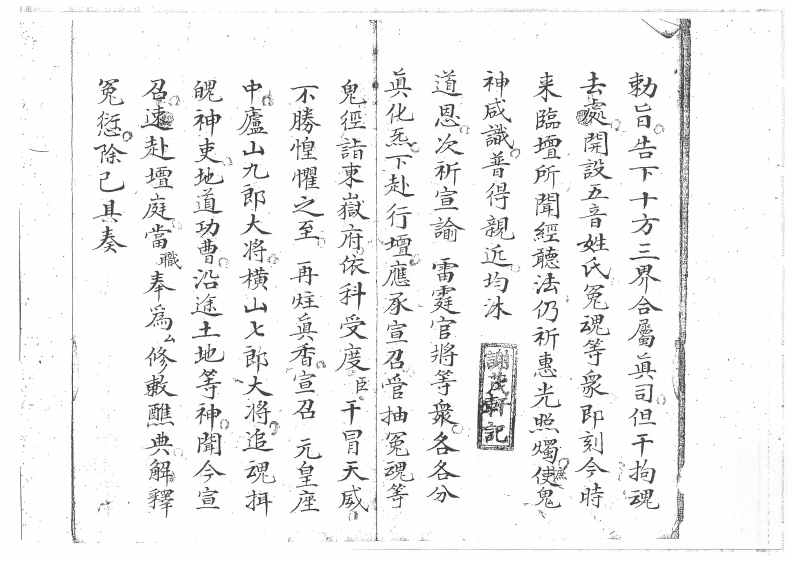 勅旨告下十方三界合属真司但干拘魂
去處開設五音姓氏冤魂等衆即刻今時
来臨壇所聞經聽法仍祈惠光照燭使鬼
神咸識普得親近均沐
謝茂軒記
道恩次祈宣諭 雷霆官將等衆各各分
真化炁下赴行壇應承宣召管抽冤魂等
鬼徑詣東嶽府依科受度臣干冒天威
不勝惶懼之至 再炷真香宣召 元皇座
中廬山九郎大將横山七郎大將追魂拝
魄神吏地道功曹沿途土地等神聞今宣
召速赴壇庭當職奉為厶修敷醮典解釋
冤愆除已具奏